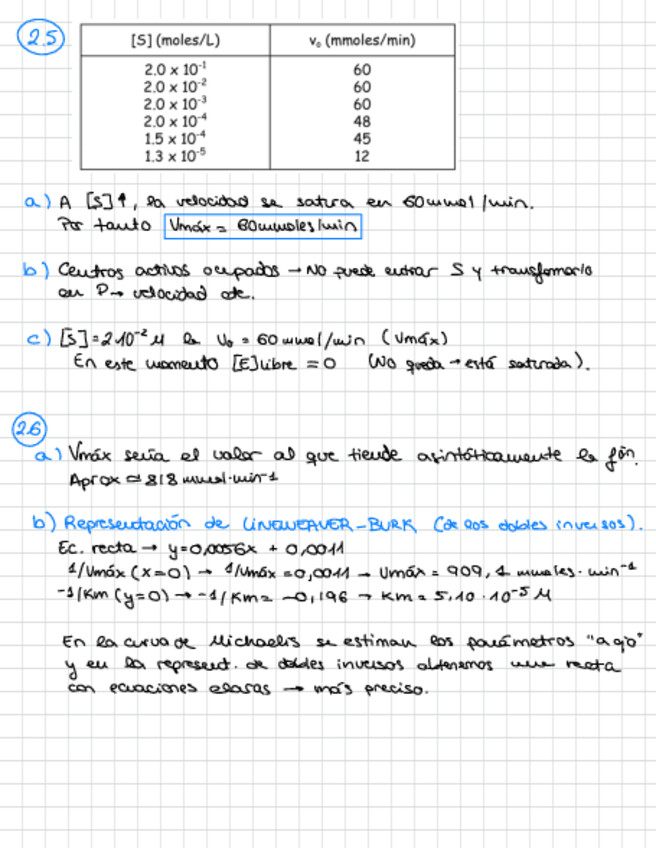 2.5
[S] (moles/L) v₀ (mmoles/min)
2.0 x 10⁻¹ 60
2.0 x 10⁻² 60
2.0 x 10⁻³ 60
2.0 x 10⁻⁴ 48
1.5 x 10⁻⁴ 45
1.3 x 10⁻⁵ 12
a) A [S]↑, la velocidad se satura en 60 mmol/min.
Por tanto Vmáx = 60 mmoles/min
b) Centros activos ocupados → No puede entrar S y transformarlo
en P → velocidad cte.
c) [S] = 2·10⁻² M la V₀ = 60 mmol/min (Vmáx)
En este momento [E]libre = 0 (No queda → está saturada).
2.6
a) Vmáx sería el valor al que tiende asintóticamente la fón.
Aprox ≃ 818 mmol·min⁻¹
b) Representación de LINEWEAVER-BURK (de los dobles inversos).
Ec. recta → y=0,0056x + 0,0011
1/Vmáx (x=0) → 1/Vmáx = 0,0011 → Vmáx = 909,1 mmoles·min⁻¹
-1/Km (y=0) → -1/Km = -0,196 → Km = 5,10·10⁻⁵ M
En la curva de Michaelis se estiman los parámetros "a ojo"
y en la represent. de dobles inversos obtenemos una recta
con ecuaciones claras → más preciso.